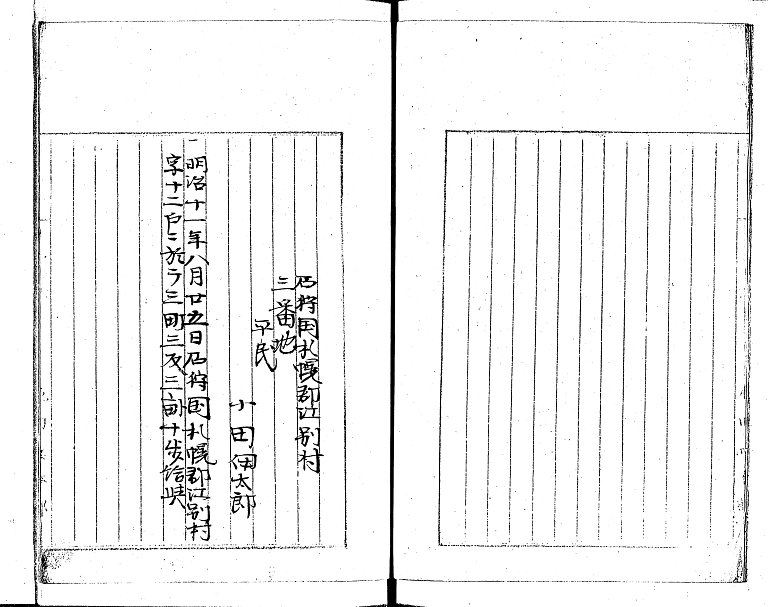 石狩国札幌郡江別村
三番地
平民
小田佃太郎
一明治十一年八月廿五日石狩国札幌郡江別村
字十二戸ニ於テ三町三反三畝十歩